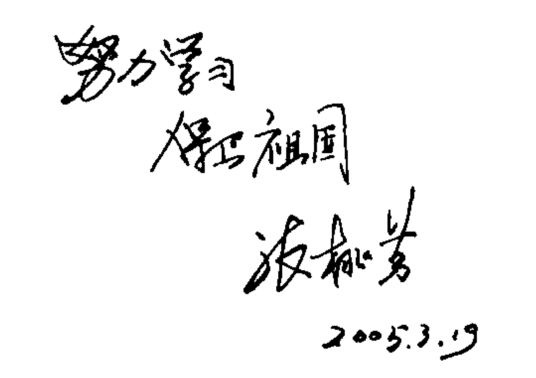 努力学习
保卫祖国
张桃芳
2005.3.19